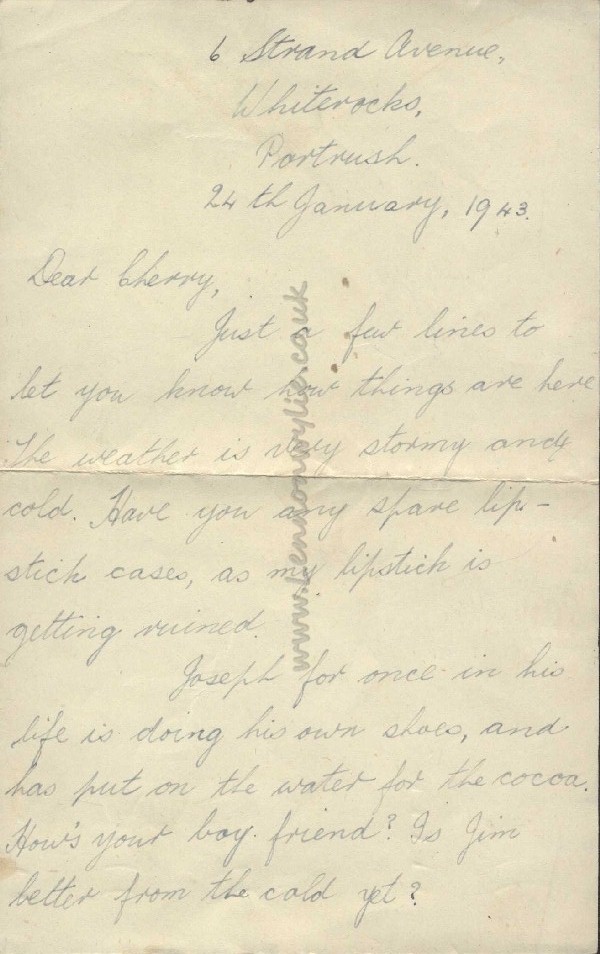 6 Strand Avenue,
Whiterocks,
Portrush.
24th January, 1943.
Dear Cherry,
Just a few lines to
let you know how things are here
The weather is very stormy and
cold. Have you any spare lip-
stick cases, as my lipstick is
getting ruined.
Joseph for once in his
life is doing his own shoes, and
has put on the water for the cocoa.
How's your boy-friend? Is Jim
better from the cold yet?
www.Lennonwylie.co.uk